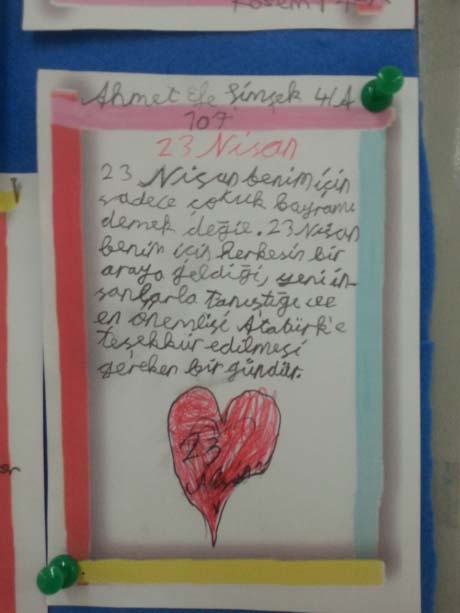 Ahmet Efe Şimşek 4/A
109
23 Nisan
23 Nisan benim için
sadece çocuk bayramı
demek değil. 23 Nisan
benim için herkesin bir
araya geldiği, yeni in-
sanlarla tanıştığı ve
en önemlisi Atatürk'e
teşekkür edilmesi
gereken bir gündür.
23
Nisan